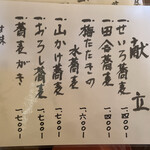 献立
一、せいろ蕎麦 一、四〇〇
一、田舎蕎麦 一、四〇〇
一、梅たたきの水蕎麦 一、六〇〇
一、山かけ蕎麦 一、七〇〇
一、おろし蕎麦 一、七〇〇
一、蕎麦がき 一、七〇〇